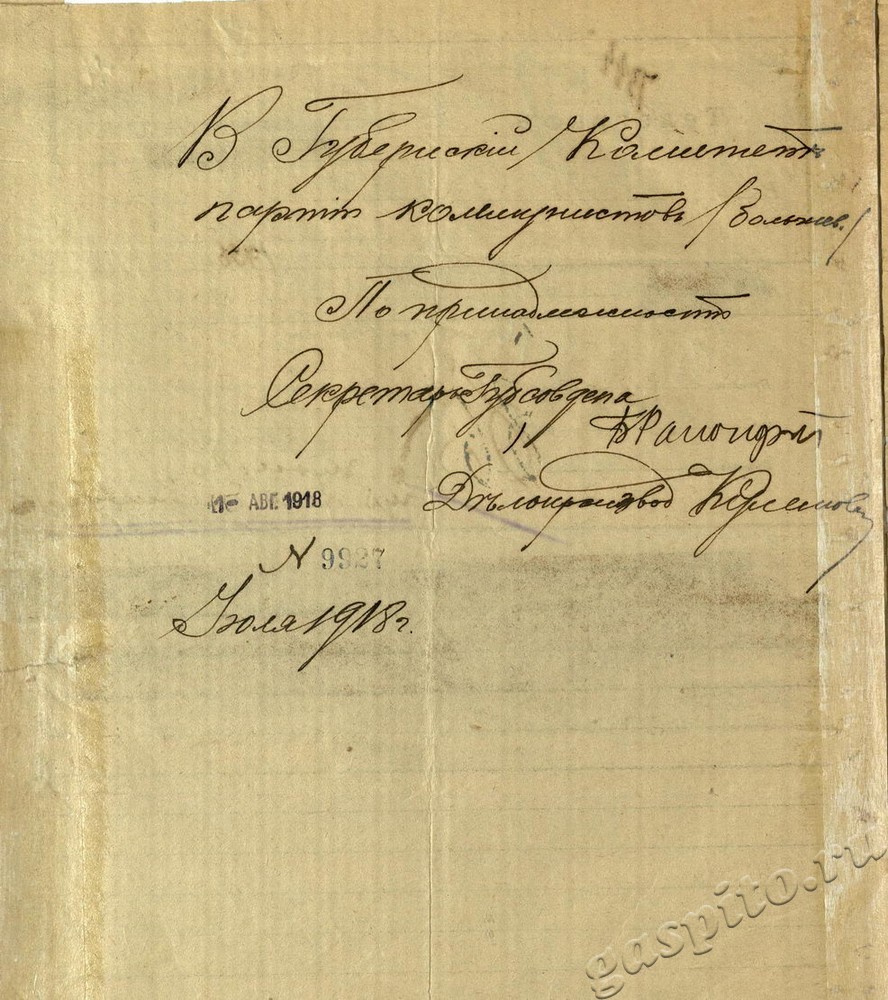 В Губернскій Комитетъ
партіи коммунистовъ /Большев./
По принадлежности
Секретарь Губсовдепа
Дѣлопроизвод
1 - АВГ. 1918
N 9927
Іюля 1918 г.
gaspito.ru